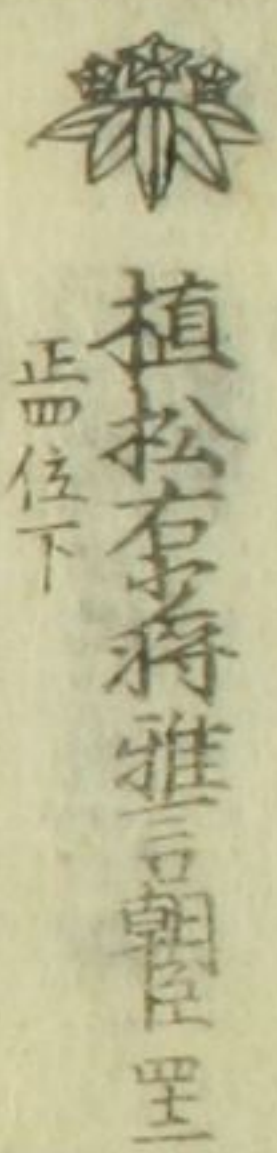 植松右少将雅言朝臣 四十二
正四位下